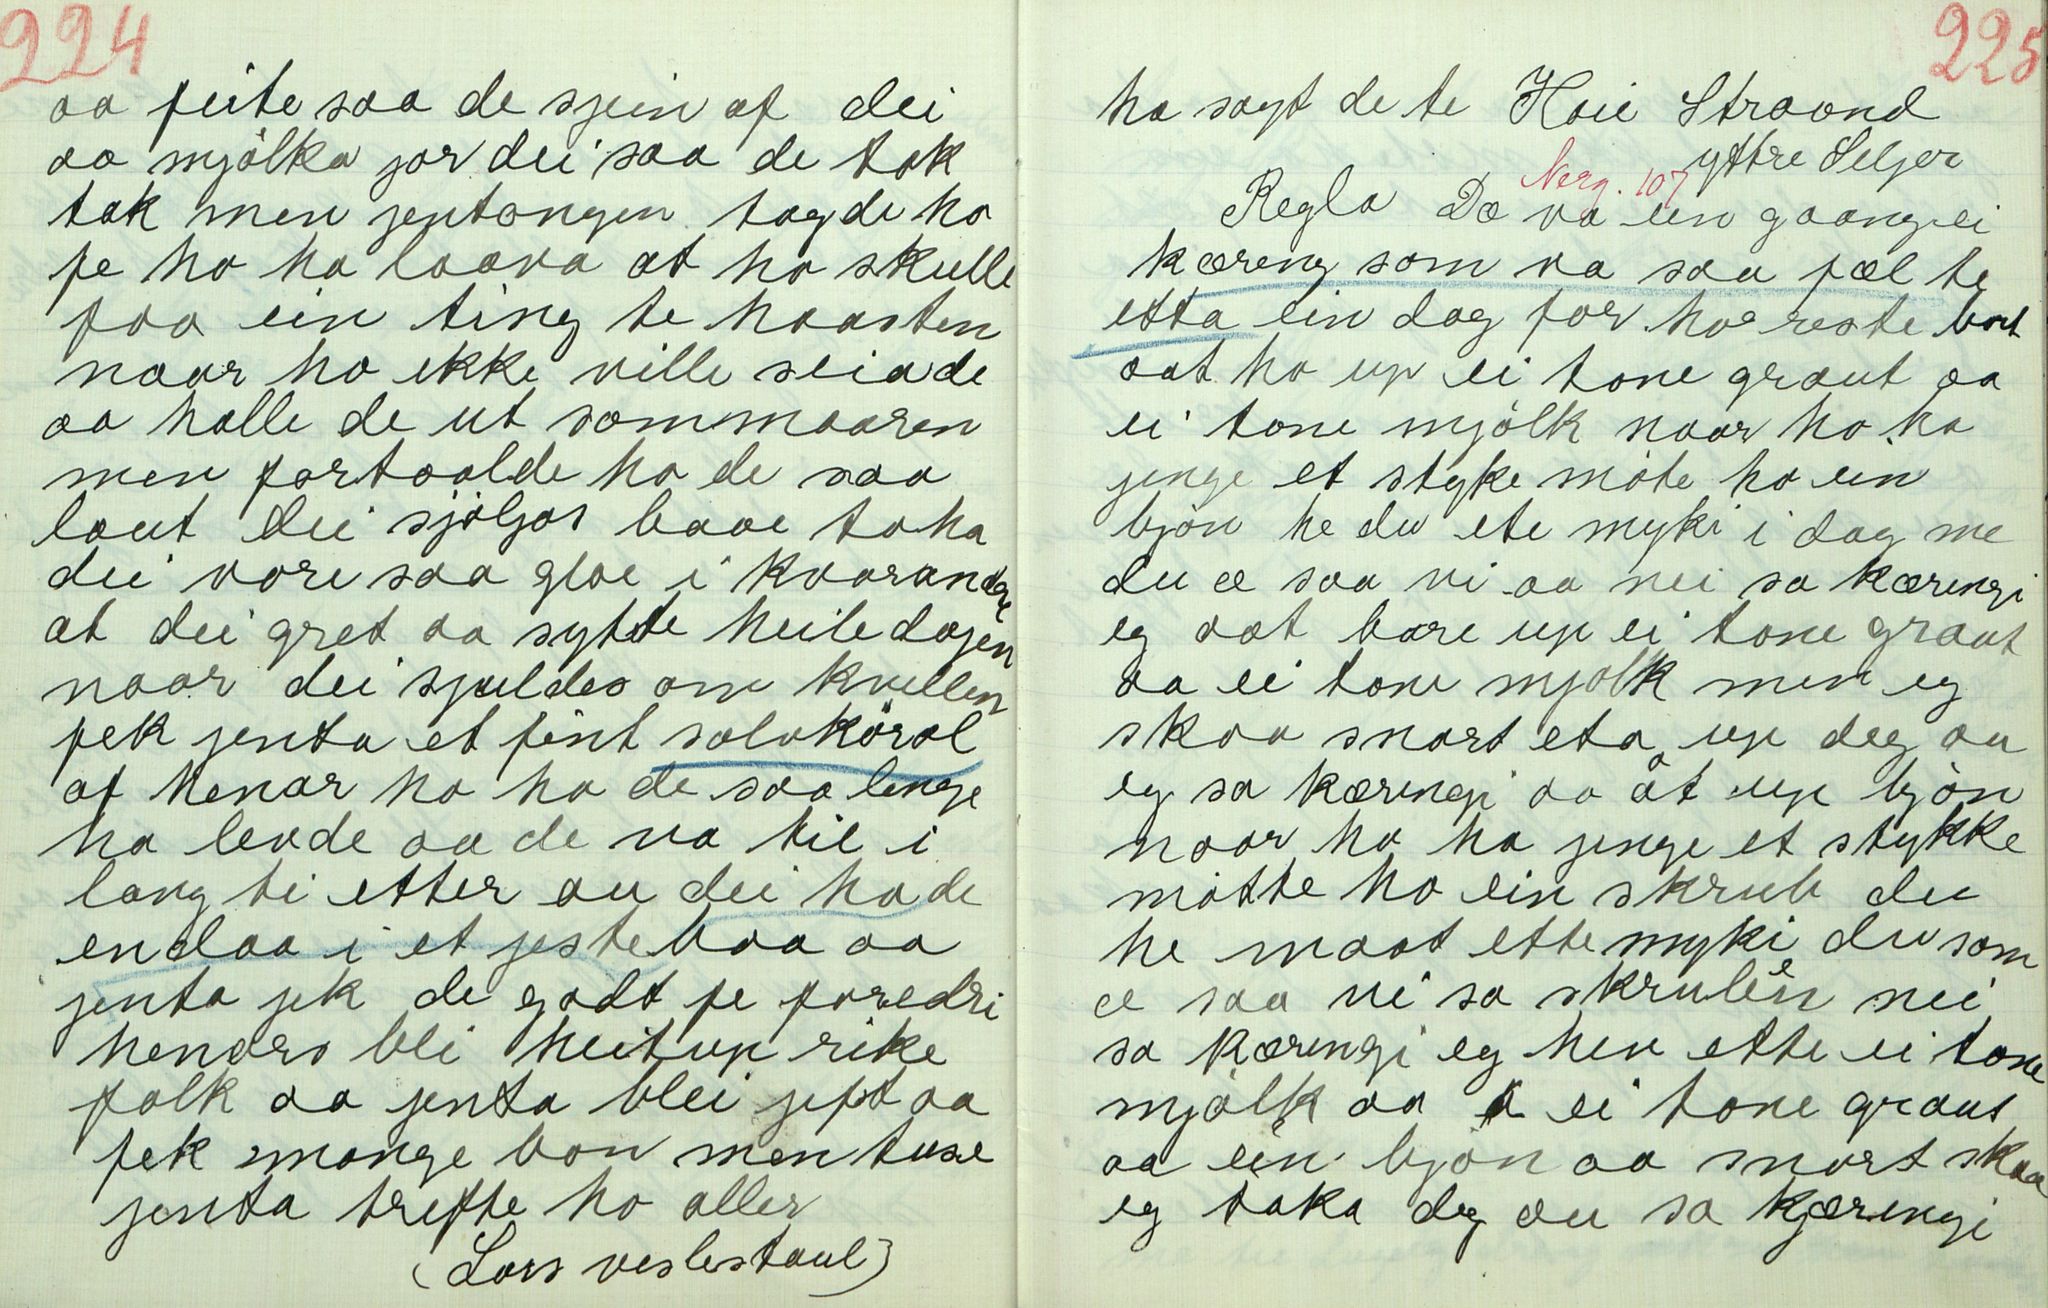 224
aa feite saa de sjein af dei
aa mjölka jor dei saa de tok
tak men jentongen tagde ho
fe ho ha laava at ho skulle
faa ein ting te haasten
naar ho ekke ville seia de
aa halle de ut sommaaren
men fortaalde ho de saa
lout dei sjöljas baae to ha
dei vore saa glae i kvarandre
at dei gret aa sytte heile dagjen
naar dei sjuldes om kvellen
fek jenta et fint sølvkørol
af henar ho ha de saa lenge
ho levde aa de va til i
lang ti etter au dei ha de
endaa i et jestebaa aa
jenta jek de godt fe foredri
hendrs blei heitup rike
folk aa jenta blei jeft aa
fek mange bon men tuse
jenta trefte ho aller
(Lars veslestaul)
225
ha sagt de te Hoie Straand
yttre Seljor
Nerg. 107
Regla Dæ va ein gaang ei
kæreng som va saa fæl te
etta ein dag før ho reste bort
aat ho up ei tone graut aa
ei tone mjölk naar ho ha
jenge et styke møte ho ein
bjøn he du ete myki i dag me
du æ saa vi aa nei sa kæringi
eg aat bare up ei tone graut
aa ei tone mjølk men eg
skaa snart eta up deg au
eg sa kæringi aa åt up bjøn
naar ho ha jenge et stykke
møtte ho ein skrub du
he maat ette myki du som
æ saa vi sa skruben nei
sa kæringi eg hev ette ei tone
mjølk aa ei tone graut
aa ein bjøn aa snart skaa
eg taka deg au sa kjæringi